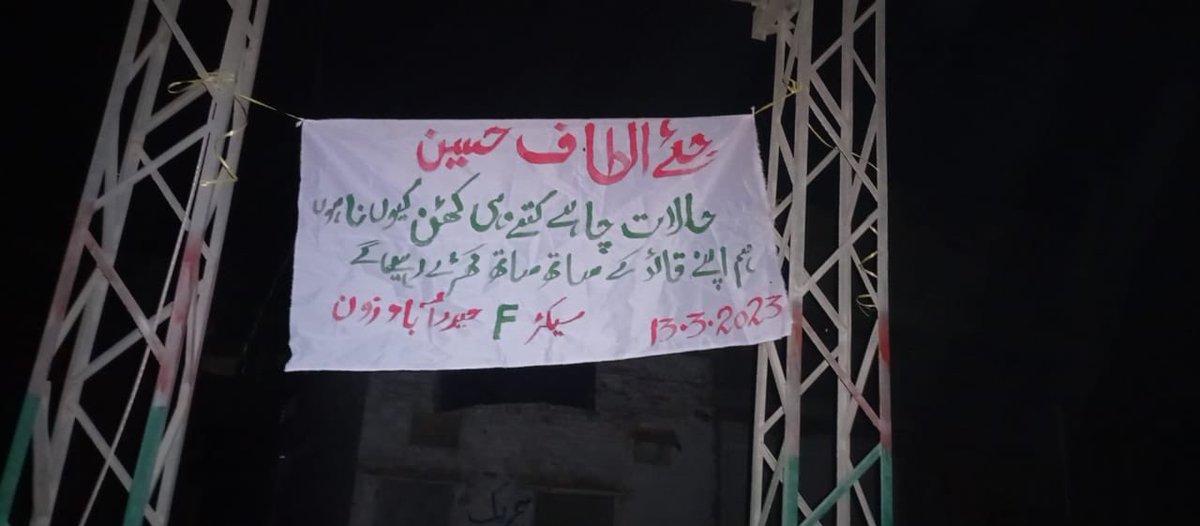 جئے الطاف حسین
حالات چاہے کتنے ہی کھٹن کیوں نا ہوں
ہم اپنے قائد کے ساتھ ساتھ کھڑے رہیں گے
سیکٹر F حیدرآباد زون 13.3.2023
تحریک